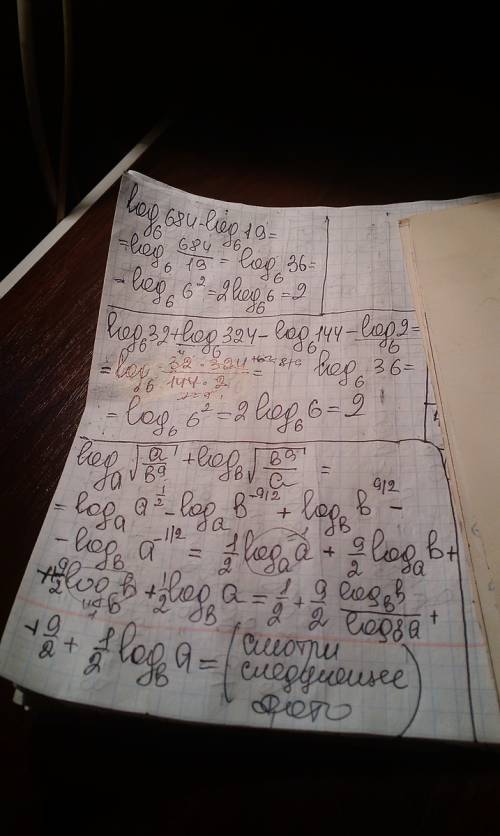 log₆684-log₆19=
=log₆ 684/19 = log₆36=
=log₆6²=2log₆6=2
log₆32+log₆324-log₆144-log₆2=
=log₆ 32·324/144·2 = log₆36=
=log₆6²=2log₆6=2
logₐ√(a/b⁹)+log_b√(b⁹/a)=
=logₐa^(1/2)-logₐb^(-9/2)+log_b b^(9/2)-
-log_b a^(-1/2)=1/2logₐa+9/2logₐb+
+9/2log_b b+1/2log_b a=1/2+9/2 log_b b/log_b a+
+9/2+1/2log_b a=(смотри
следующее
фото)